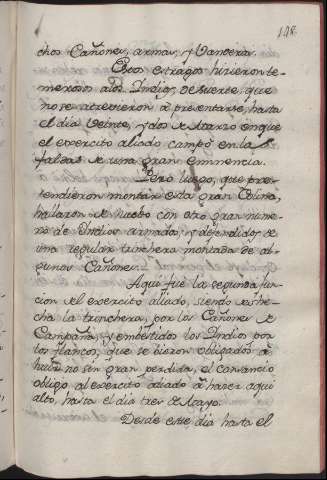 198
chos Cañones, armas, y Vanderas.
Esos estragos hicieron te-
merosos a los Indios, de suerte, que
no se atrevieron à presentarse, hasta
el dia Veinte, y dos de Marzo en que
el exercito aliado campó en las
faldas de una gran eminencia.
Pero luego, que pre-
tendieron montar esta gran Colina,
hallaron de nuebo con otro gran nume-
ro de Indios armados, y defendidos de
una regular trinchera montada de al-
gunos Cañones.
Aqui fué la segunda fun-
cion del exercito aliado, siendo deshe-
cha la trinchera, por los Cañones de
Campaña, y embestidos los Indios por
los flancos, que se vieron obligados à
huir no sin gran perdida, el cansancio
obligo al exército aliado à hacer aqui
alto, hasta el dia tres de Mayo.
Desde este dia hasta el